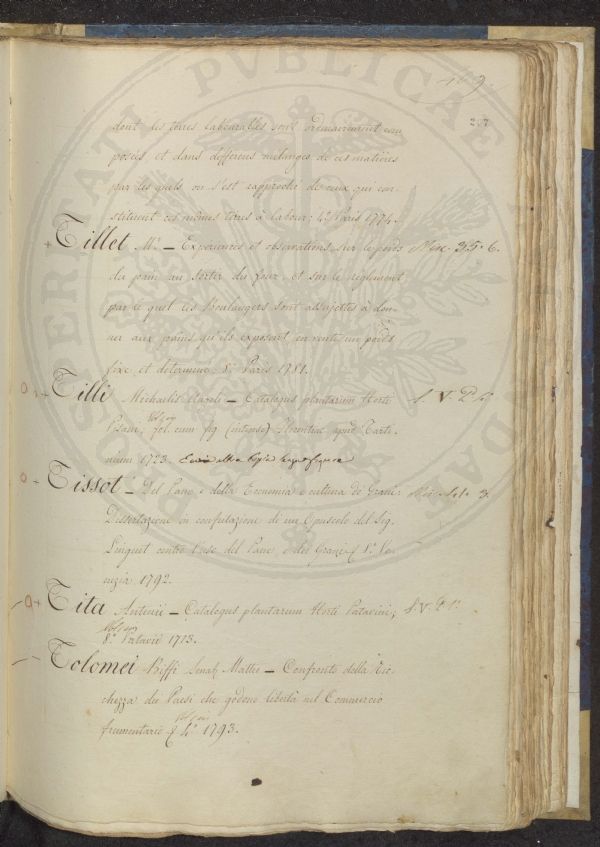 PROSPERITATI PUBLICAE
207
dont les terres labourables sont ordinairement com
posées, et dans differens mélanges de ces matières
par les quels on s'est rapproché de ceux qui con-
stituent ces mêmes terres à labour: 4° Paris 1774.
+ Tillet Mr. — Experiences et observations sur le poids
du pain au sortir du four, et sur le reglement
par le quel les Boulangers sont assujettis à don-
ner aux pains qu'ils exposent en vente un poids
fixe et determiné 8° Paris 1781.
Tilli Michaelis Angeli — Catalogus plantarum Horti S. V.
Pisani, fol. cum fig (intonso) Florentiae apud Tarti-
nium 1723.
+ Tissot — Del Pane e della Economia e cultura de' Grani: 3.
Dissertazione in confutazione di un Opuscolo del Sig.
Linguet contro l'uso del Pane e dei Grani 8° Ve-
nezia 1792.
Tita Antonii — Catalogus plantarum Horti Patavini; S. V.
8° Patavii 1713.
Tolomei Biffi Senat. Matteo — Confronto della Ric-
chezza dei Paesi che godono libertà nel Commercio
frumentario 4° 1793.